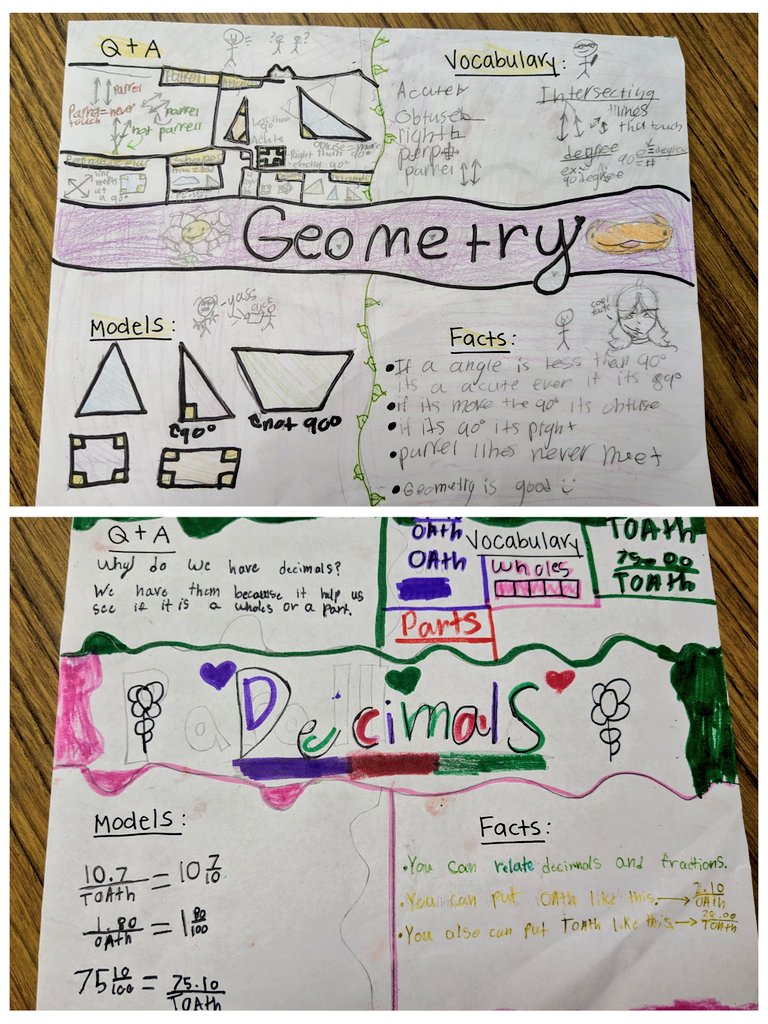 Q + A
Parrell
Parrel = never
touch
Parrell
not parrell
Less than
90°
Acute
Obtuse = more
than 90°
Right
exactly 90°
Shapes
line
meets
at a
a 90°
Vocabulary:
Acute
Obtuse
right
perp
parrel
Intersecting
lines
that touch
degree
ex: 90°
90 degree
° = degree
Geometry
Models:
yass
90°
not 90°
Facts:
cool
facts
• If a angle is less than 90°
its a acute even if its 89°
• if its more the 90° its obtuse
• if its 90° its right
• parrel lines never meet
• Geometry is good
Q + A
Why do we have decimals?
We have them because it help us
see if it is a wholes or a part.
OATh
OATh
Parts
Vocabulary
wholes
TOATh
75.00
TOATh
Decimals
Models:
10.7/TOATh = 10 7/10
1.80/OATh = 1 80/100
75 10/100 = 75.10/TOATh
Facts:
• You can relate decimals and fractions.
• You can put OATh like this. → 2.10/OATh
• You also can put TOATh like this → 25.00/TOATh